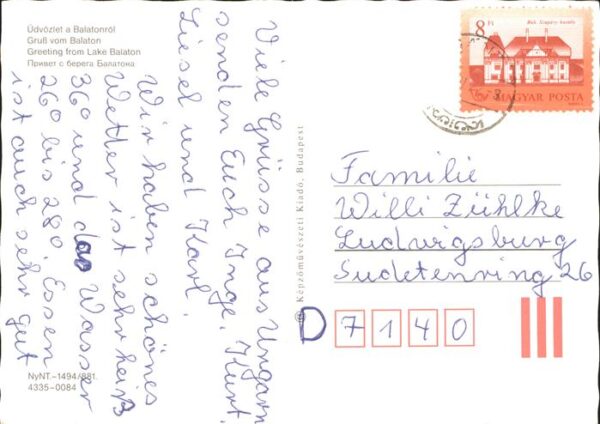 Üdvözlet a Balatonról
Gruß vom Balaton
Greeting from Lake Balaton
Привет с берега Балатона
Viele Grüsse aus Ungarn
senden Euch Inge, Kurt,
Liesel und Karl.
Wir haben schönes
Wetter ist sehr heiß
36o und das Wasser
26o bis 28o. Essen
ist auch sehr gut
NyNT.–1494/881.
4335-0084
Képzőművészeti Kiadó, Budapest
8 Ft
MAGYAR POSTA
Familie
Willi Zühlke
Ludwigsburg
Sudetenring 26
D 7140